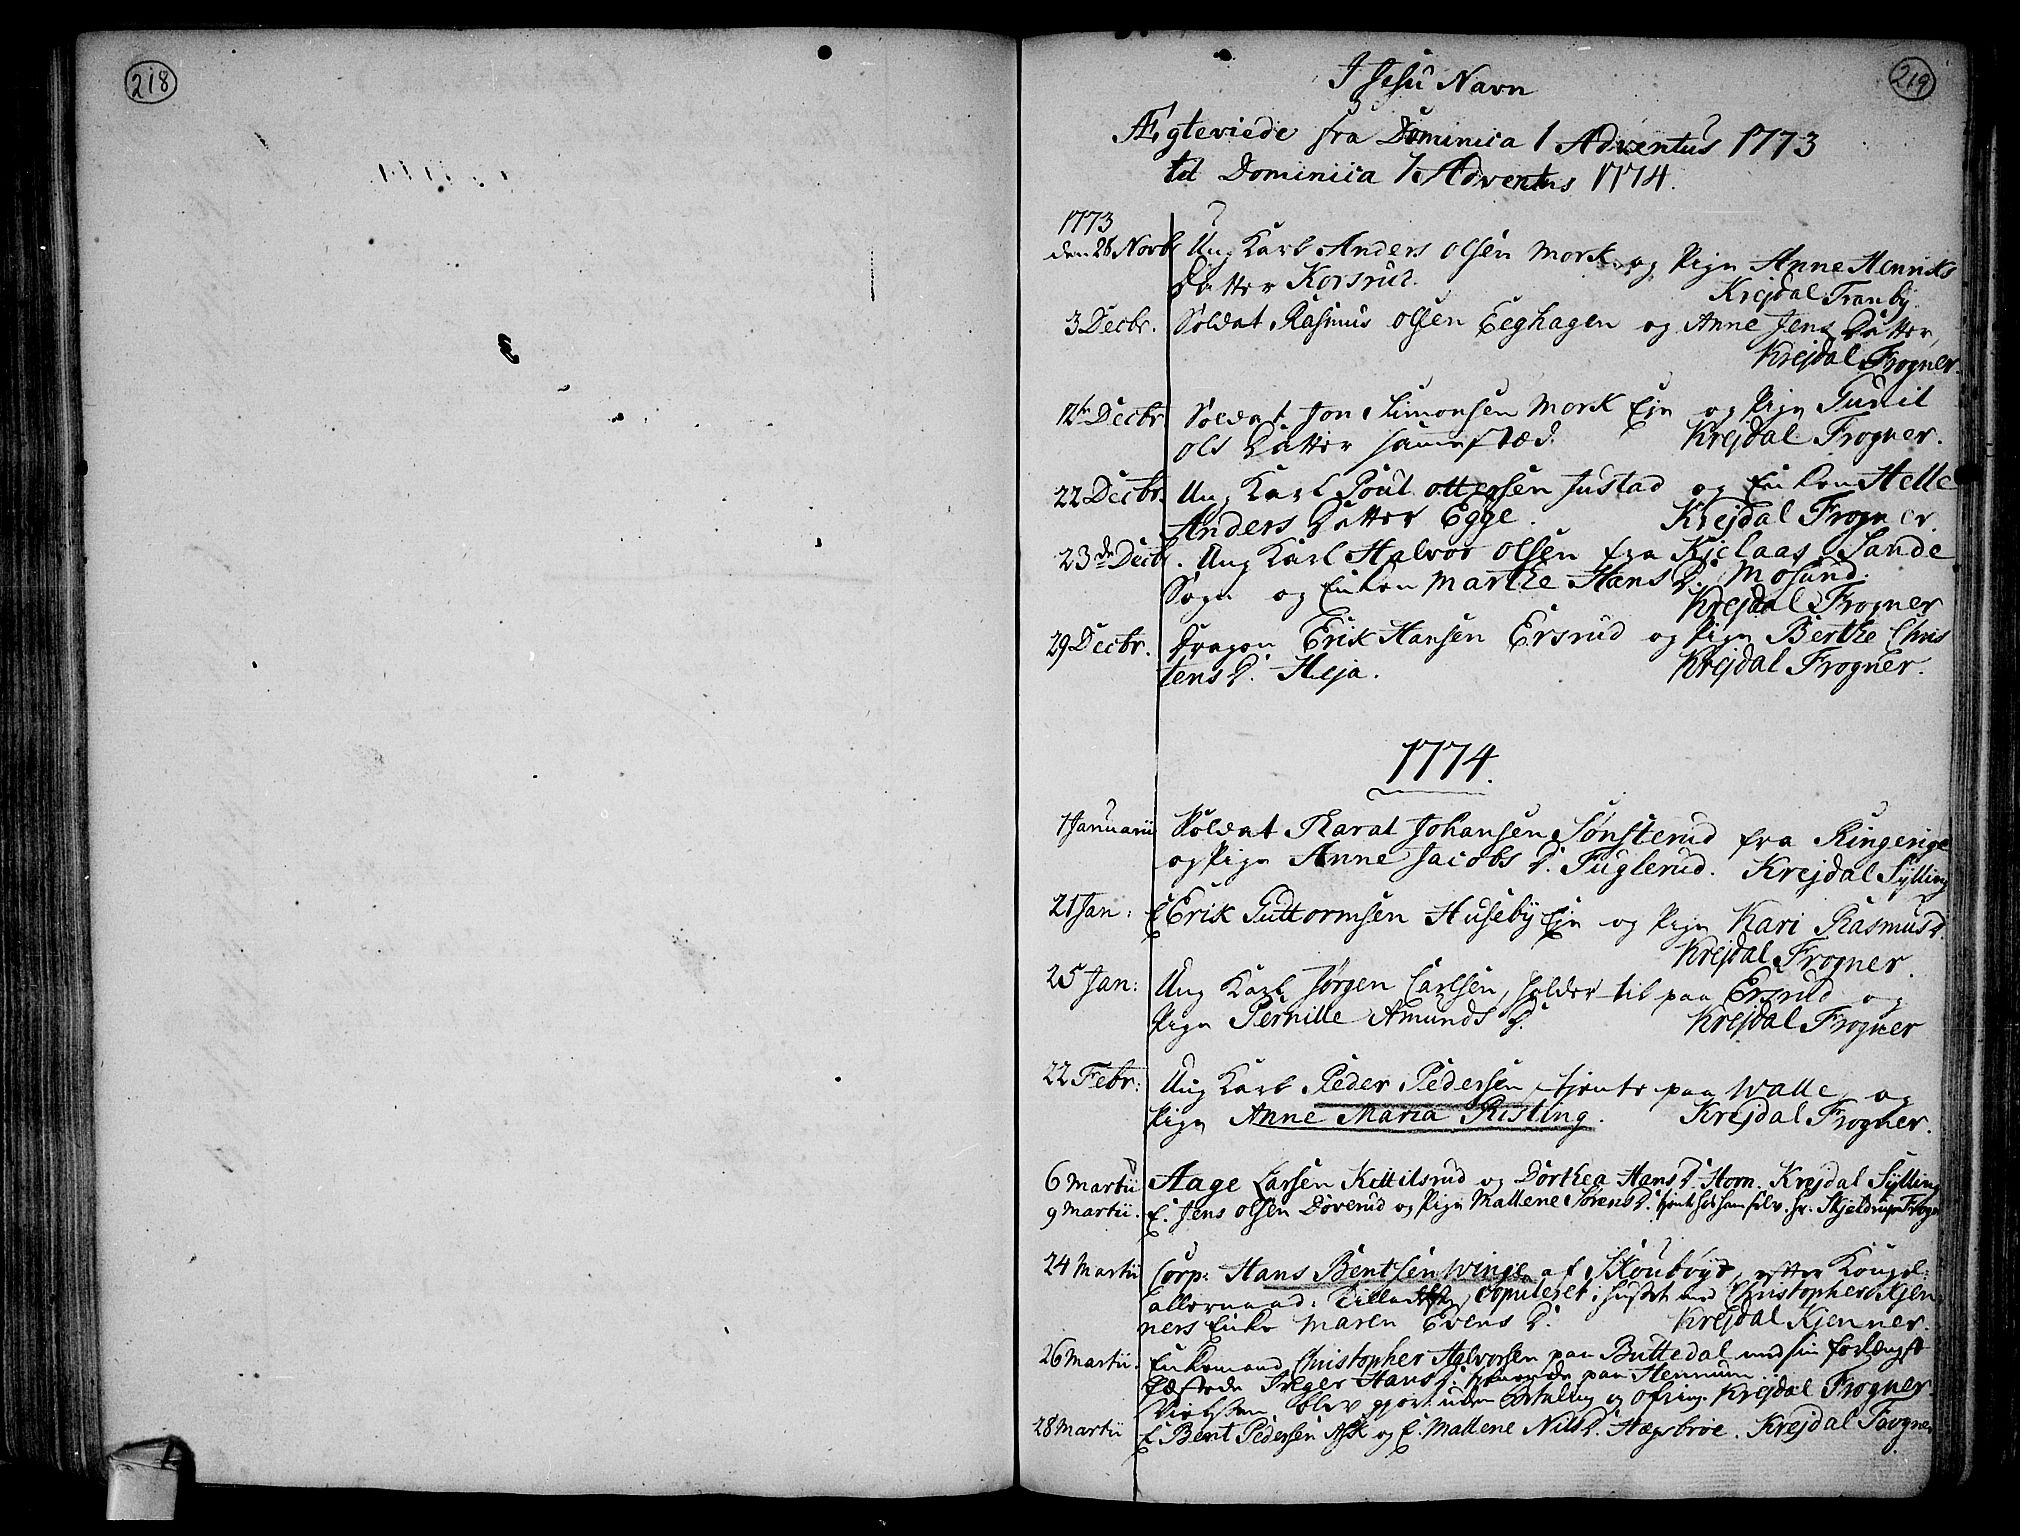 218
219
I Jesu Navn
Ægteviede fra Dominica 1 Adventus 1773
til Dominica 1 Adventus 1774.
1773
den 28 Novbr Ung Karl Anders Olsen Mork og Pige Anne Henriks
Datter Korsrud. Krejdal Tranby.
3 Decbr. Soldat Rasmus Olsen Eeghagen og Anne Jens Datter,
Krejdal Frogner.
12te Decbr. Soldat Jon Simonsen Mork Eje og Pige Gunil
Ols Datter sammested. Krejdal Frogner.
22 Decbr. Ung Karl Poul Ottersen Justad og Enken Helle
Anders Datter Egge. Krejdal Frogner.
23de Decbr. Ung Karl Halvor Olsen fra Kjelaas Sande
Sogn og Enken Marthe Hans D. Mosund.
Krejdal Frogner
29 Decbr. Dragon Erik Hansen Ersrud og Pige Berthe Chris
tens D. Heja. Krejdal Frogner.
1774.
1 Januarii Soldat Haral Johansen Sønsterud fra Ringerige
og Pige Anne Jacobs D. Fuglerud. Krejdal Sylling
21 Jan: E Erik Guttormsen Huseby Eje og Pige Kari Rasmus D.
Krejdal Frogner.
25 Jan: Ung Karl Jørgen Carlsen, holder til paa Ersrud og
Pige Pernille Amunds D. Krejdal Frogner
22 Febr: Ung Karl Peder Pedersen, tjente paa Walle, og
Pige Anne Maria Risting. Krejdal Frogner.
6 Martii Aage Larsen Kittilsrud og Dorthea Hans D. Horn. Krejdal Sylling
9 Martii. E. Jens Olsen Døverud og Pige Mallene Sørens D. tjente hos Hr. Skjeldrup Frogn
24 Martii Corp: Hans Bentsen Winge af Skoubøyr, efter Kongel:
allernaad: Tilladelse, copuleret i Huset med Christopher Kjen
ners Enke Maren Evens D. Krejdal Kjenner.
26 Martii. Enkemand Christopher Halvorsen paa Buttedal med sin forlængst
fæstede Inger Hans D. tjenende paa Hennum.
Vielsen blev gjort uden Betaling og Ofring. Krejdal Frogner.
28 Martii E Bent Pedersen Ask og E. Mallene Nils D. Hægsbroe. Krejdal Frogner